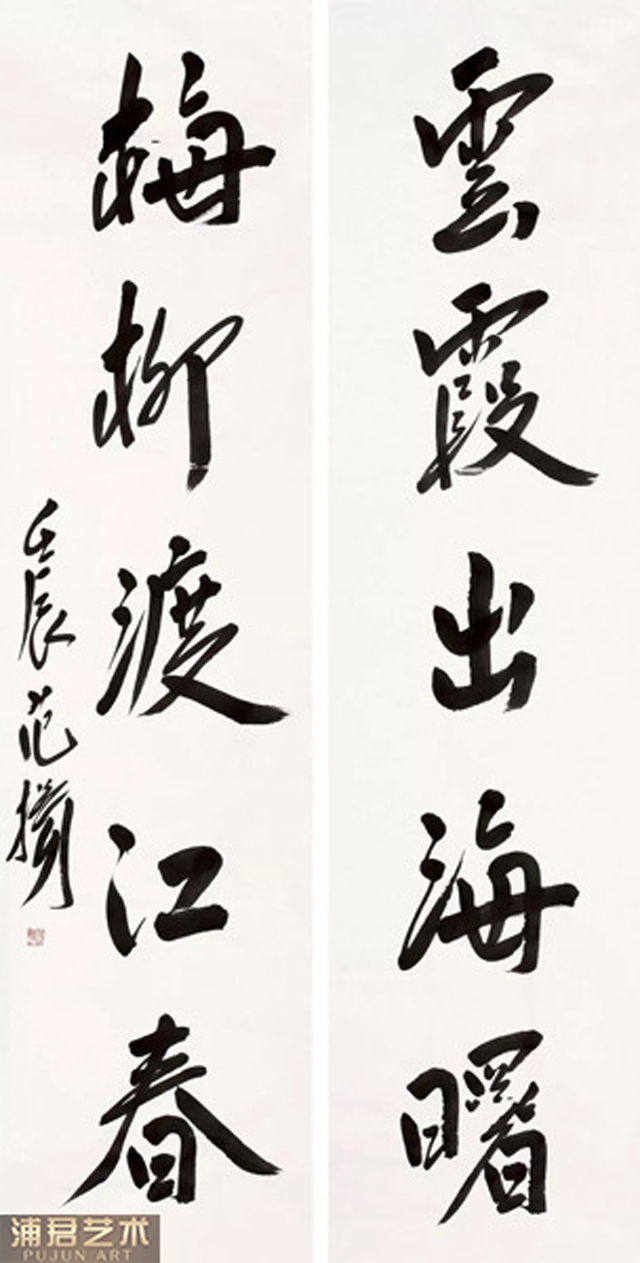 雲霞出海曙
梅柳渡江春
壬辰 范擴
浦君艺术
PUJUN ART